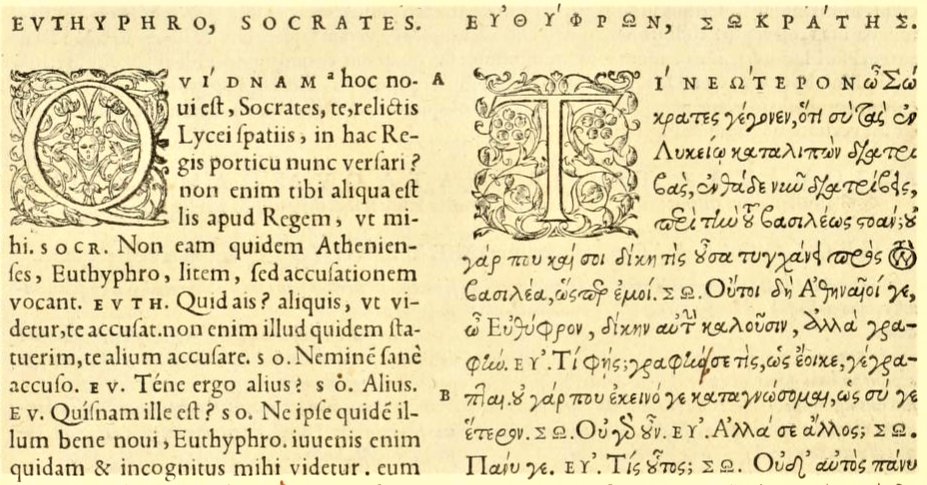 EVTHYPHRO, SOCRATES.
QVÍDNAM ª hoc no-
ui eſt, Socrates, te, relictis
Lycei ſpatiis, in hac Re-
gis porticu nunc verſari?
non enim tibi aliqua eſt
lis apud Regem, vt mi-
hi. SOCR. Non eam quidem Athenien-
ſes, Euthyphro, litem, ſed accuſationem
vocant. EVTH. Quid ais? aliquis, vt vi-
detur, te accuſat. non enim illud quidem ſta-
tuerim, te alium accuſare. SO. Neminē ſanè
accuſo. EV. Téne ergo alius? SO. Alius.
EV. Quiſnam ille eſt? SO. Ne ipſe quidē il-
lum bene noui, Euthyphro. iuuenis enim
quidam & incognitus mihi videtur. eum
ΕΥ̓ΘΎΦΡΩΝ, ΣΩΚΡΆΤΗΣ.
A
ΤΊ ΝΕΏΤΕΡΟΝ ὦ Σώ
κρατες γέγονεν, ὅτι σὺ τὰς ἐν
Λυκείῳ καταλιπὼν διατρι
βὰς, ἐνθάδε νῦν διατρίβεις,
περὶ τὴν τοῦ βασιλέως στοάν; οὐ
γάρ που καί σοι δίκη τὶς οὖσα τυγχάνει πρὸς τὸν
βασιλέα, ὥσπερ ἐμοί. ΣΩ. Οὔτοι δὴ Ἀθηναῖοί γε,
ὦ Εὐθύφρον, δίκην αὐτὴν καλοῦσιν, ἀλλὰ γρα-
φήν. ΕΥ̓. Τί φής; γραφήν σε τὶς, ὡς ἔοικε, γέγρα-
B
πται. οὐ γάρ που ἐκεῖνό γε καταγνώσομαι, ὡς σύ γε
ἕτερον. ΣΩ. Οὐ γὰρ οὖν. ΕΥ̓. Ἀλλά σε ἄλλος; ΣΩ.
Πάνυ γε. ΕΥ̓. Τίς οὗτος; ΣΩ. Οὐδ' αὐτὸς πάνυ